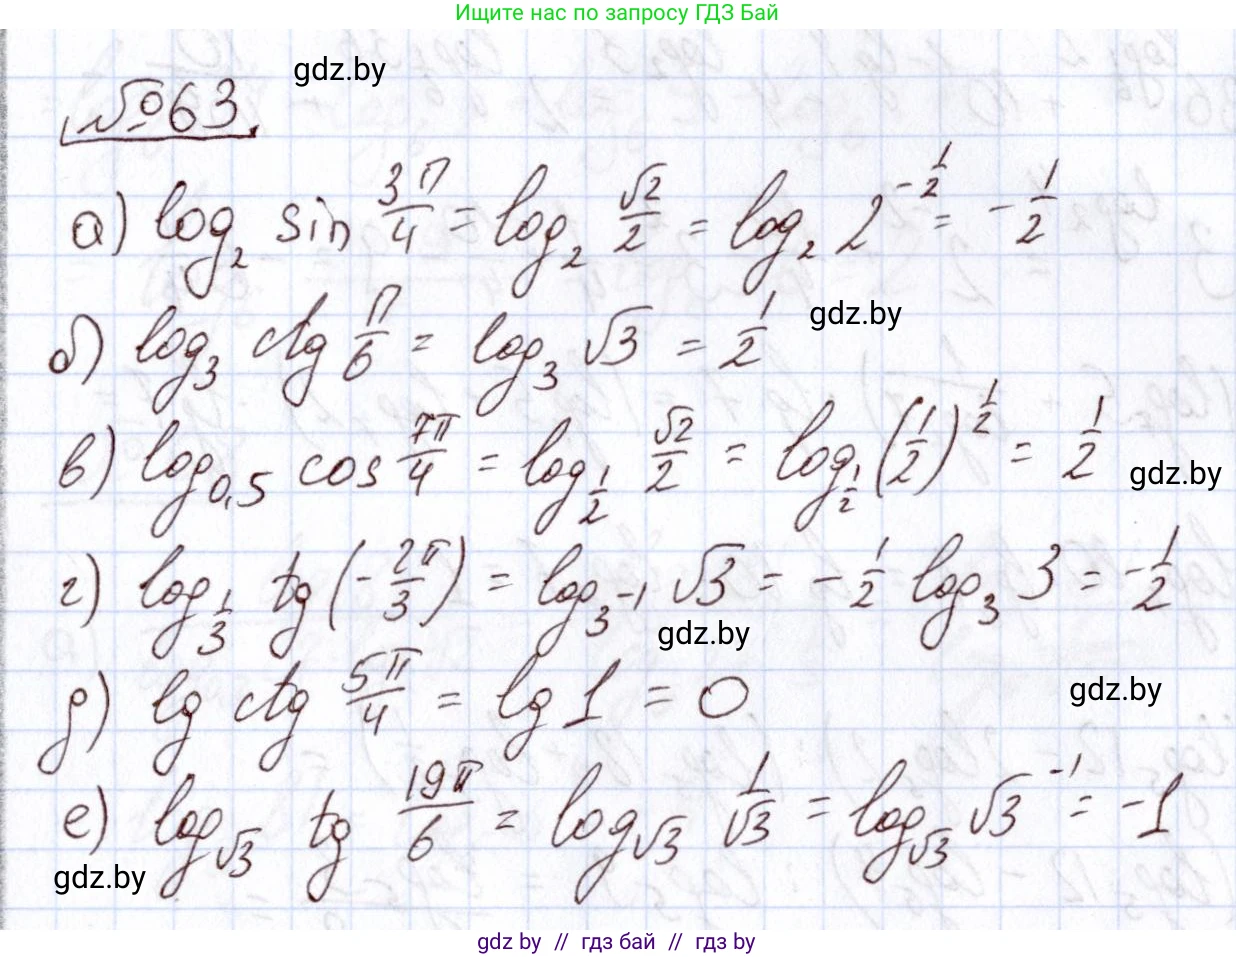 Ищите нас по запросу ГДЗ Бай
gdz.by
№63
а) log₂ sin 3π/4 = log₂ √2/2 = log₂ 2^(-1/2) = -1/2
gdz.by
б) log₃ ctg π/6 = log₃ √3 = 1/2
в) log₀,₅ cos 7π/4 = log_(1/2) √2/2 = log_(1/2) (1/2)^(1/2) = 1/2
gdz.by
г) log_(1/3) tg (-2π/3) = log_(3^(-1)) √3 = -1/2 log₃ 3 = -1/2
gdz.by
д) lg ctg 5π/4 = lg 1 = 0
gdz.by
е) log_(√3) tg 19π/6 = log_(√3) 1/√3 = log_(√3) √3^(-1) = -1
gdz.by
gdz by // гдз бай // гдз by